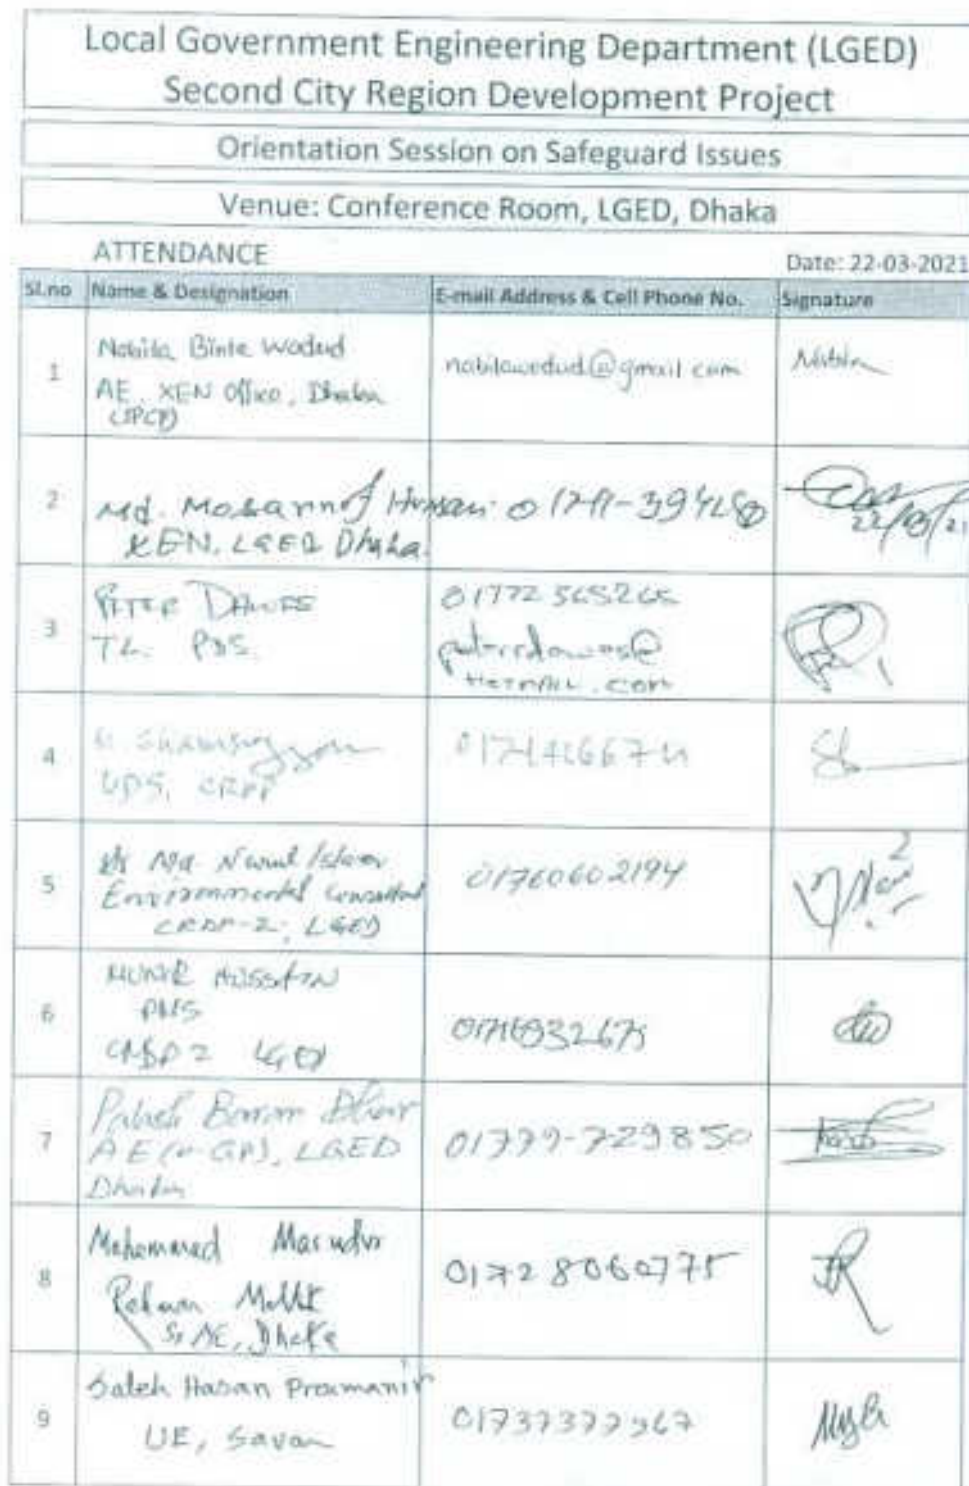 Local Government Engineering Department (LGED)
Second City Region Development Project
Orientation Session on Safeguard Issues
Venue: Conference Room, LGED, Dhaka
ATTENDANCE
Date: 22-03-2021
Sl.no Name & Designation E-mail Address & Cell Phone No. Signature
1
Nabila Binte Wadud
AE, XEN Office, Dhaka
nabilawadud@gmail.com
2
Md. Hossain
XEN, LGED Dhaka.
22/03/21
3
PETER DAWES
TL PDS
01772565265
peterdawes@
HOTMAIL.COM
4
UPS, CRDP
5
Dr Md. Nurul Islam
Environmental Consultant
CRDP-2, LGED
01760602194
6
MUNIR HUSSAIN
PMS
CRDP 2 LGED
7
Palash
LGED
Dhaka
01779-729850
8
Mohammad Masudur
Rahman
Sr. AE, Dhaka
01728060775
9
Saleh Hasan Pramanik
UE, Savar